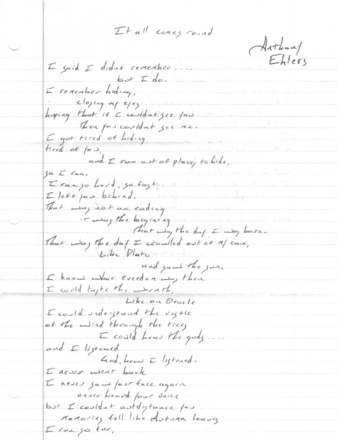 It all comes round
Anthony
Ehlers
I said I didnt remember ....
but I do.
I remember hiding,
closing my eyes
hoping that if I couldnt see you
then you couldnt see me.
I got tired of hiding
tired of you,
and I ran out of places to hide,
so I ran.
I ran so hard, so fast,
I left you behind.
That was not an ending
it was the beginning
That was the day I was born.
That was the day I crawled out of my cave,
Like Plato
and saw the sun,
I knew what freedom was then
I could taste the warmth,
Like an Oracle
I could understand the rustle
of the wind through the trees
I could hear the gods ....
and I listened
God, how I listened.
I never went back
I never saw your face again
never heard your voice
but I couldnt outdistance you
memories fell like Autumn leaves
I ran so far,